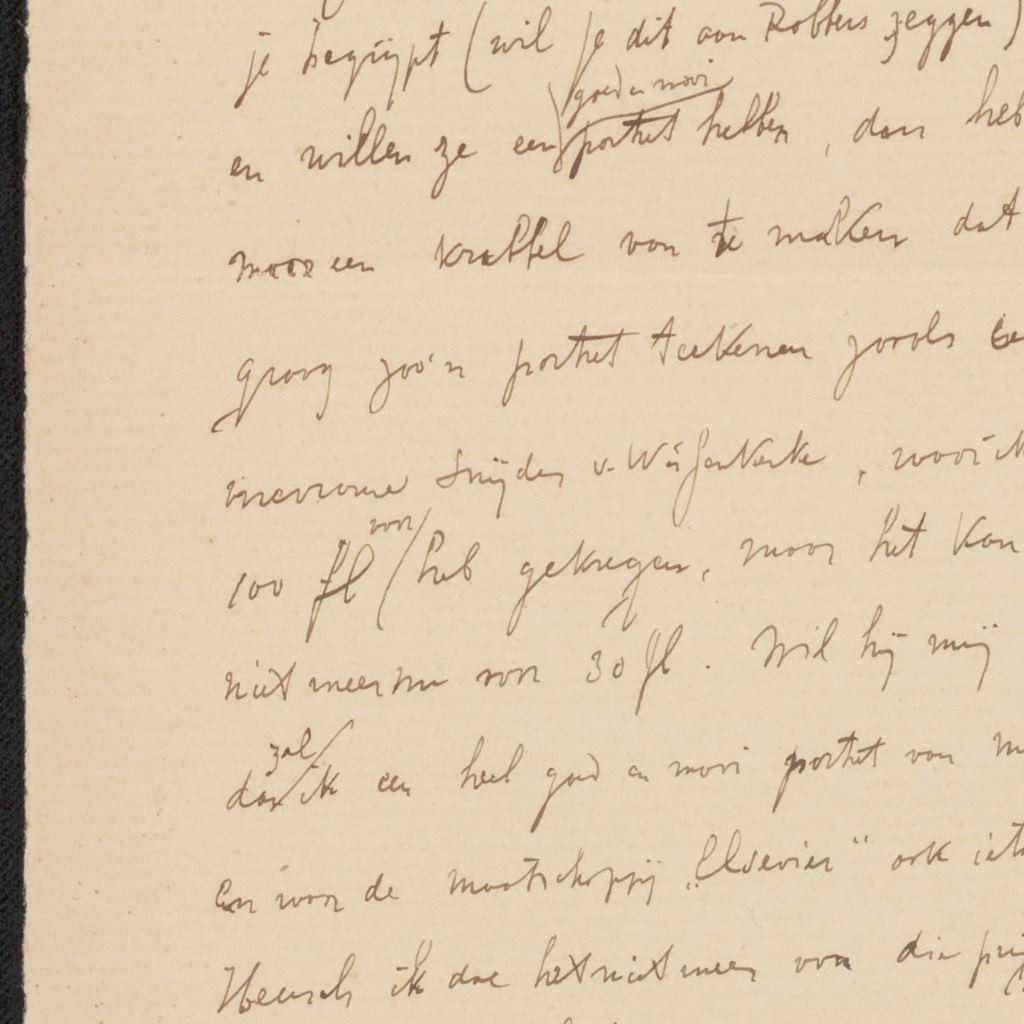 je begrijpt (wil je dit aan Robbers zeggen)
goed en mooi
en willen ze een portret hebben, dan heb
maar een krabbel van te maken dat
graag zoo'n portret teekenen zooals
mevrouw Snijder v. Wissenkerke, waar ik
voor
100 fl heb gekregen, maar het kan
niet meer nu voor 30 fl. Wil hij mij
zal
dan ik een heel goed en mooi portret van
En voor de maatschappij „Elsevier" ook iets
Heusch ik doe het niet meer voor die